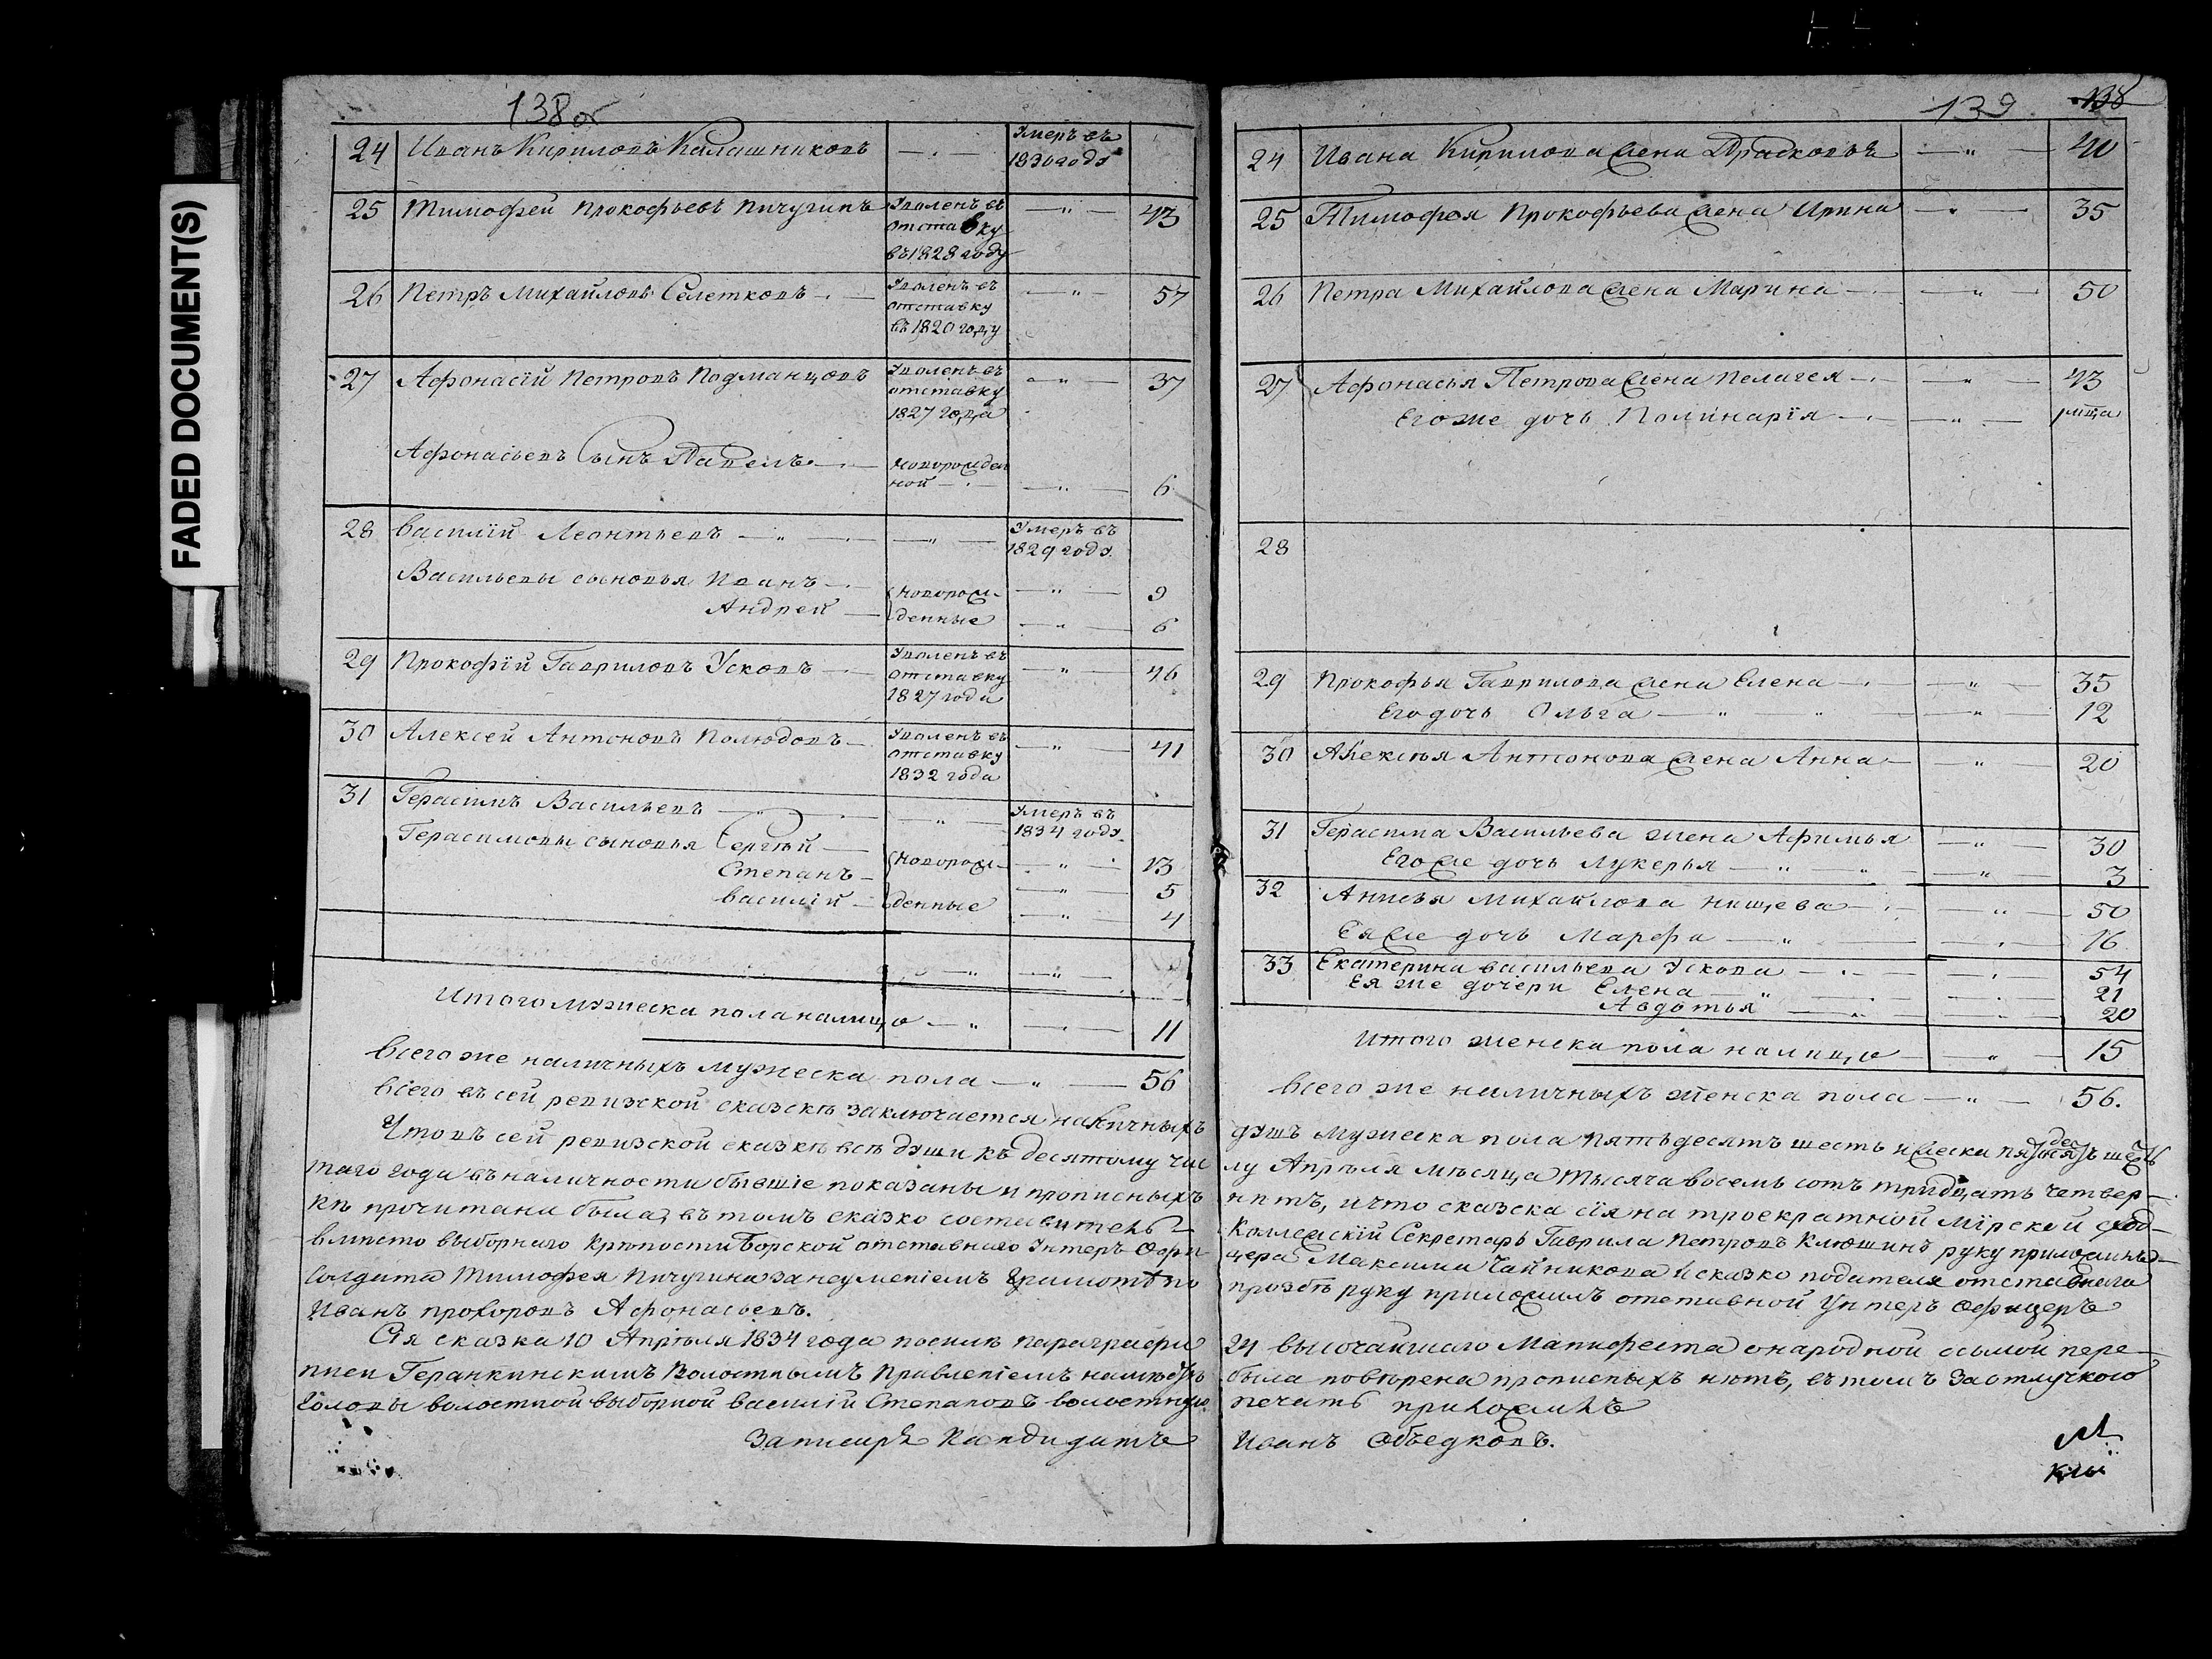 FADED DOCUMENT(S)
138об
24 Иванъ Кириловъ Калашниковъ — Умеръ въ
1830 годѵ
25 Тимофей Прокофьевъ Пичугинъ Уволенъ въ — " — 43
отставку
въ 1828 году
26 Петръ Михайловъ Селетковъ — Уволенъ въ — " — 57
отставку
въ 1820 году
27 Афонасій Петровъ Подманцовъ Уволенъ въ — " — 37
отставку
1827 года
Афонасьевъ Сынъ Павелъ — новорожден
ной — " — 6
28 Василій Леонтьевъ — " — — " — Умеръ въ
1829 годѵ.
Васильевы сыновья Иванъ — новорож- — " — 9
Андрей — денные — " — 6
29 Прокофій Гавриловъ Усковъ — Уволенъ въ — " — 46
отставку
1827 года
30 Алексей Антоновъ Полюдовъ — Уволенъ въ — " — 41
отставку
1832 года
31 Герасимъ Васильевъ — " — — " — Умеръ въ
1834 годѵ.
Герасимовы сыновья Сергѣй — новорож- — " — 13
Степанъ — — " — 5
Василій — денные — " — 4
— " — — " —
Итого мужеска пола налицо — " — — " — 11
Всего же наличныхъ мужеска пола — " — 56
Всего въ сей ревизской сказкѣ заключается наличныхъ
Что въ сей ревизской сказкѣ всѣ души къ десятому чис
таго года въ наличности бывшіе показаны и прописныхъ
кѣ прочитана была, въ томъ сказко составитель
вместо выборнаго Крѣпости Борской отставнаго Унтеръ Офи
Солдата Тимофея Пичугина за неумѣніемъ Грамотѣ по
Иванъ прохоровъ Афонасьевъ.
Сія сказка 10 Апрѣля 1834 года посилѣ параграфа
писи Геранкинскимъ Волостнымъ Правленіемъ
Головы волостной выборной Василій Степановъ волостную
Записирь Кандидатъ
139 138
24 Ивана Кирилова жена Прасковья — " — 40
25 Тимофея Прокофьева жена Ирина — " — 35
26 Петра Михайлова жена Марина — — " — 50
27 Афонасья Петрова жена Пелагея — — " — 43
Его же дочь Полинарія — — " — 1 мца
28
29 Прокофья Гаврилова жена Елена — — " — 35
Его дочь Ольга — " — — " — 12
30 Алексѣя Антонова жена Анна — — " — 20
31 Герасима Васильева жена Афимья — " — 30
Его же дочь Лукерья — " — — " — 3
32 Анисья Михайлова Нищева — — " — 50
Ея же дочь Марфа — " — — " — 16
33 Екатерина Васильева Ускова — — " — 54
Ея же дочери Елена — " — — " — 21
Авдотья — " — — " — 20
Итого женска пола налицо — " — 15
Всего же наличныхъ женска пола — " — 56.
душъ мужеска пола пятьдесятъ шесть и женска пятьдесятъ шесть
лу Апрѣля мѣсяца тысяча восемь сотъ тридцать четвер-
нѣтъ, и что сказска сія на троекратной мірской сход-
Коллежскій Секретарь Гаврила Петровъ Клюшинъ руку приложилъ
цера Максима Чайникова и сказко подателя отставнаго
прозбѣ руку приложилъ отставной Унтеръ Офицеръ
24 высочайшаго Манифеста о народной осьмой пере-
была повѣрена прописныхъ нѣтъ, въ томъ за отлучкою
печать приложилъ
Иванъ Объедковъ.